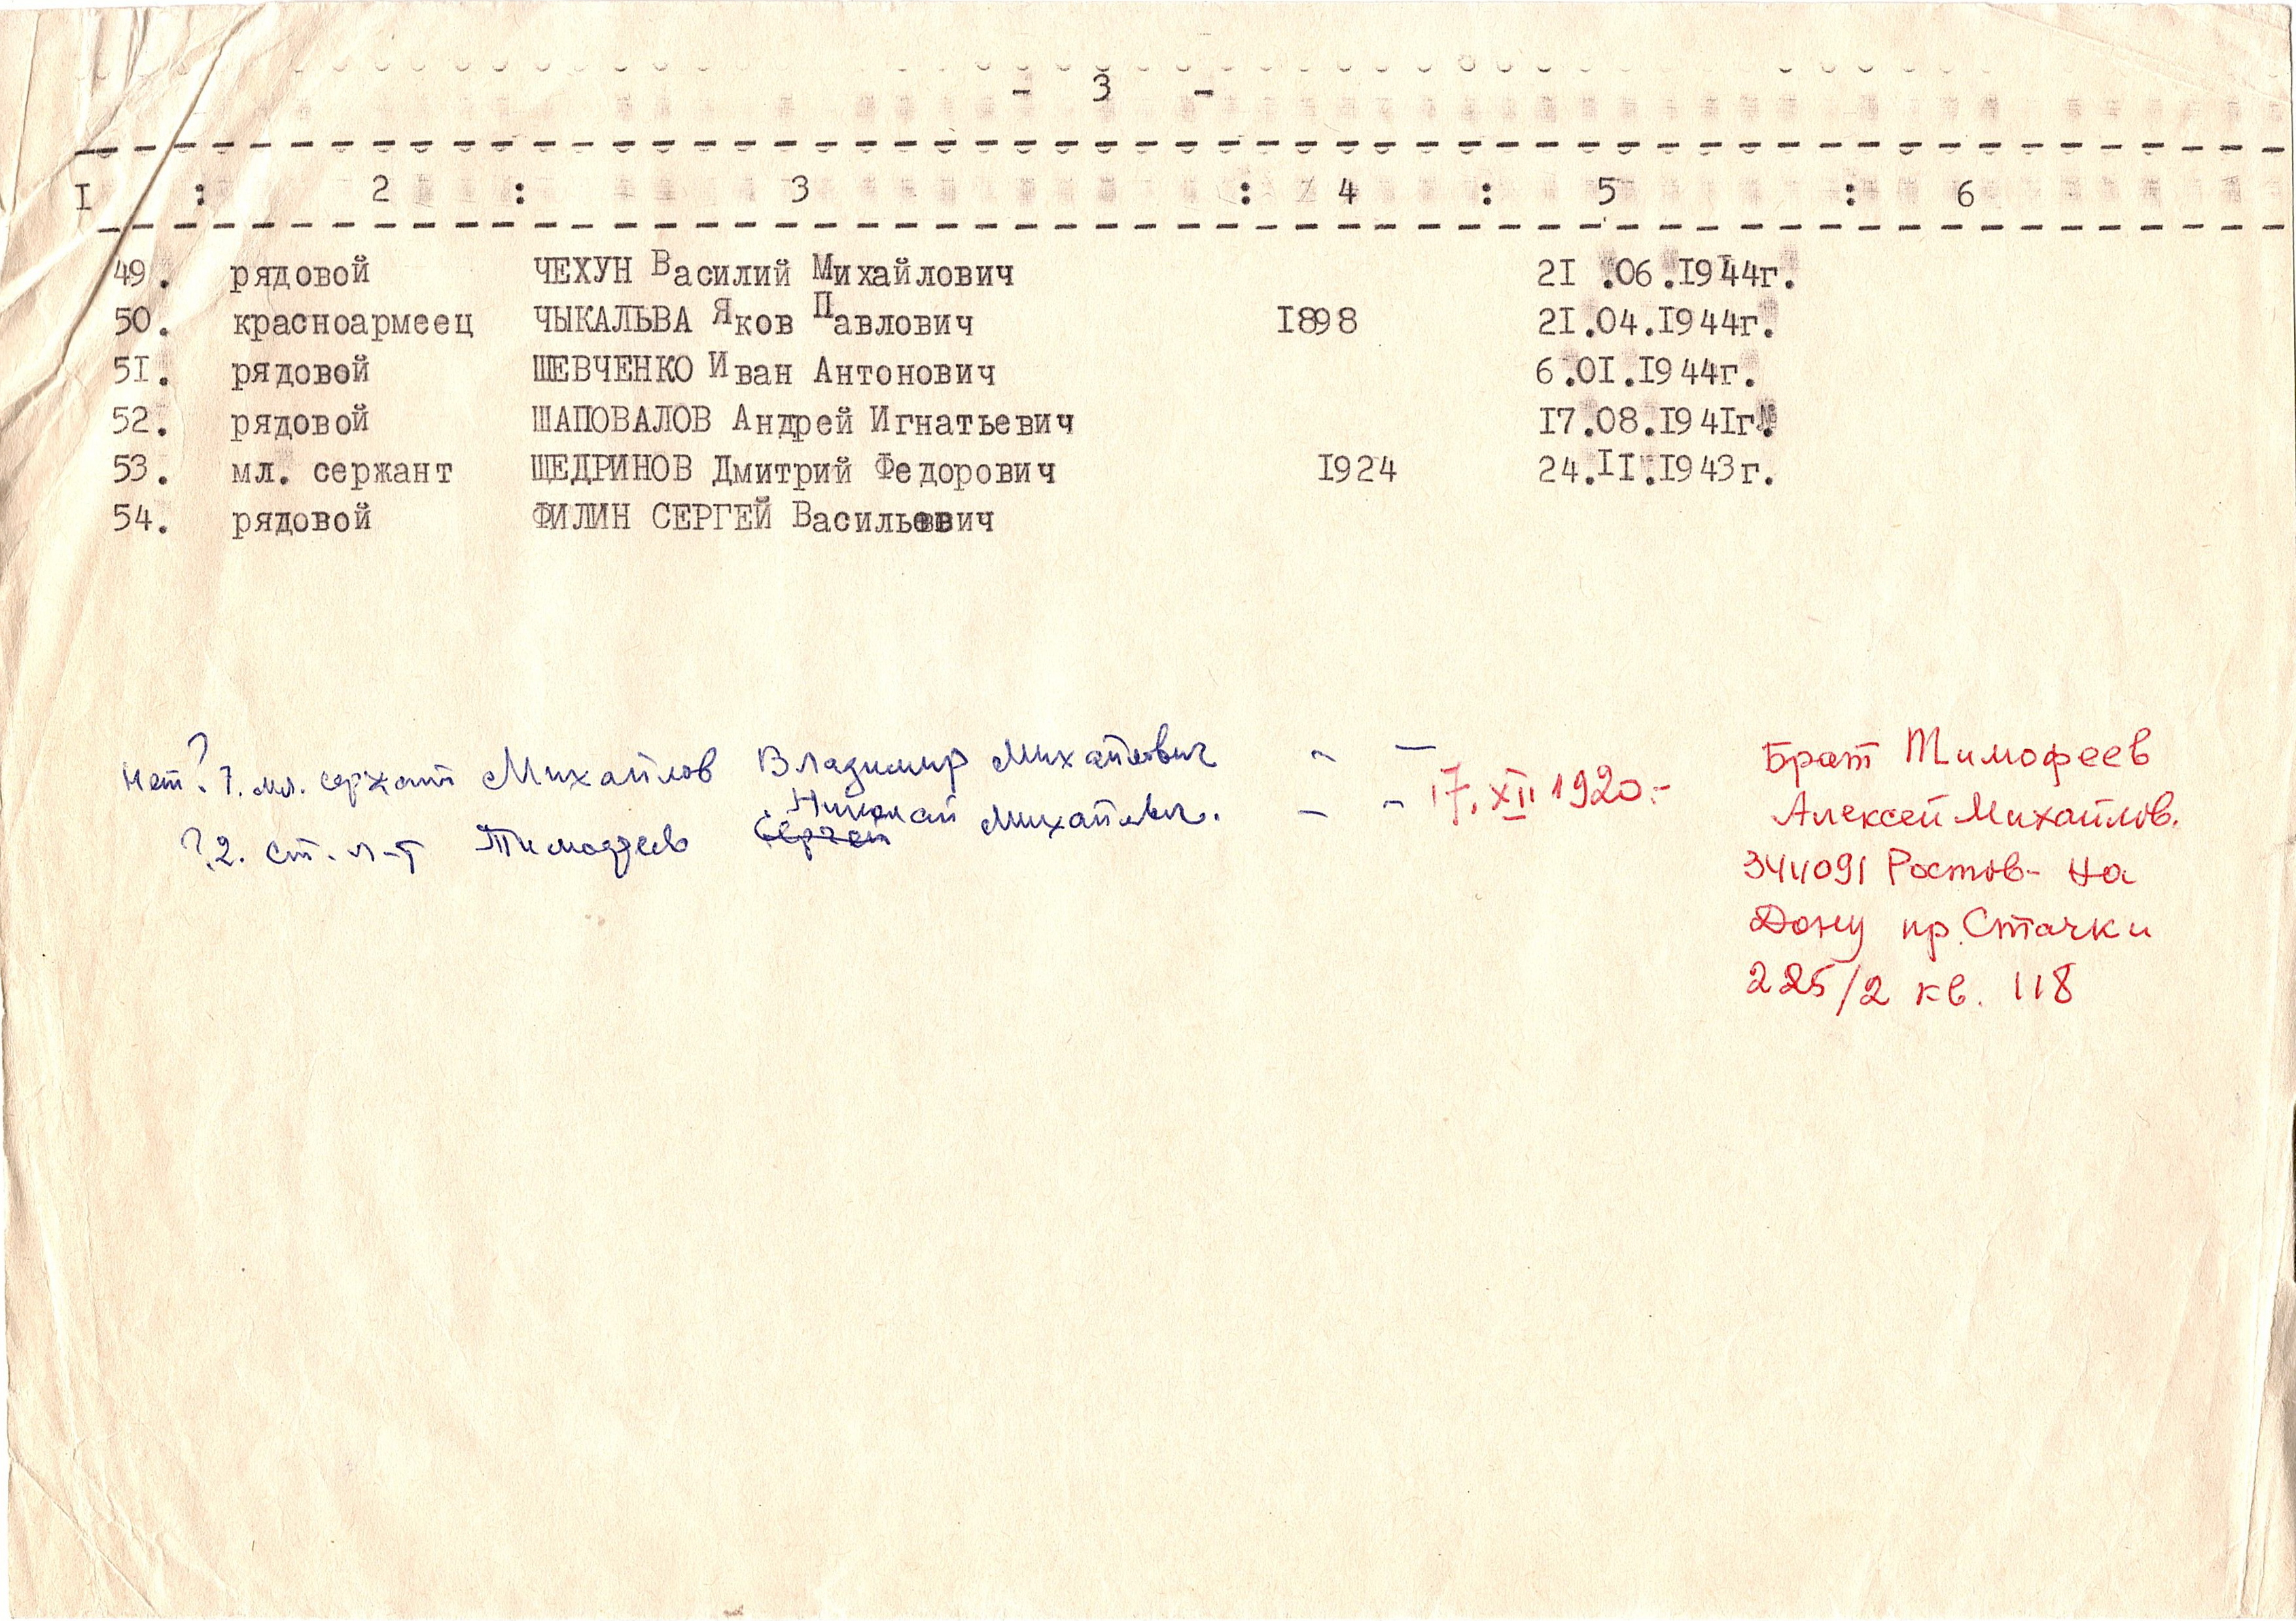 - 3 -
I : 2 : 3 : 4 : 5 : 6
49. рядовой ЧЕХУН Василий Михайлович 21.06.1944г.
50. красноармеец ЧЫКАЛЬВА Яков Павлович 1898 21.04.1944г.
51. рядовой ШЕВЧЕНКО Иван Антонович 6.01.1944г.
52. рядовой ШАПОВАЛОВ Андрей Игнатьевич 17.08.1941г.
53. мл. сержант ЩЕДРИНОВ Дмитрий Федорович 1924 24.11.1943г.
54. рядовой ФИЛИН СЕРГЕЙ Васильевич
Нет ? 1. мл. сержант Михайлов Владимир Михайлович - -
Николай
? 2. ст. л-т Тимофеев Сергей Михайлович. - - 17. XII 1920.-
Брат Тимофеев
Алексей Михайлов.
344091 Ростов-на
Дону пр. Стачки
225/2 кв. 118